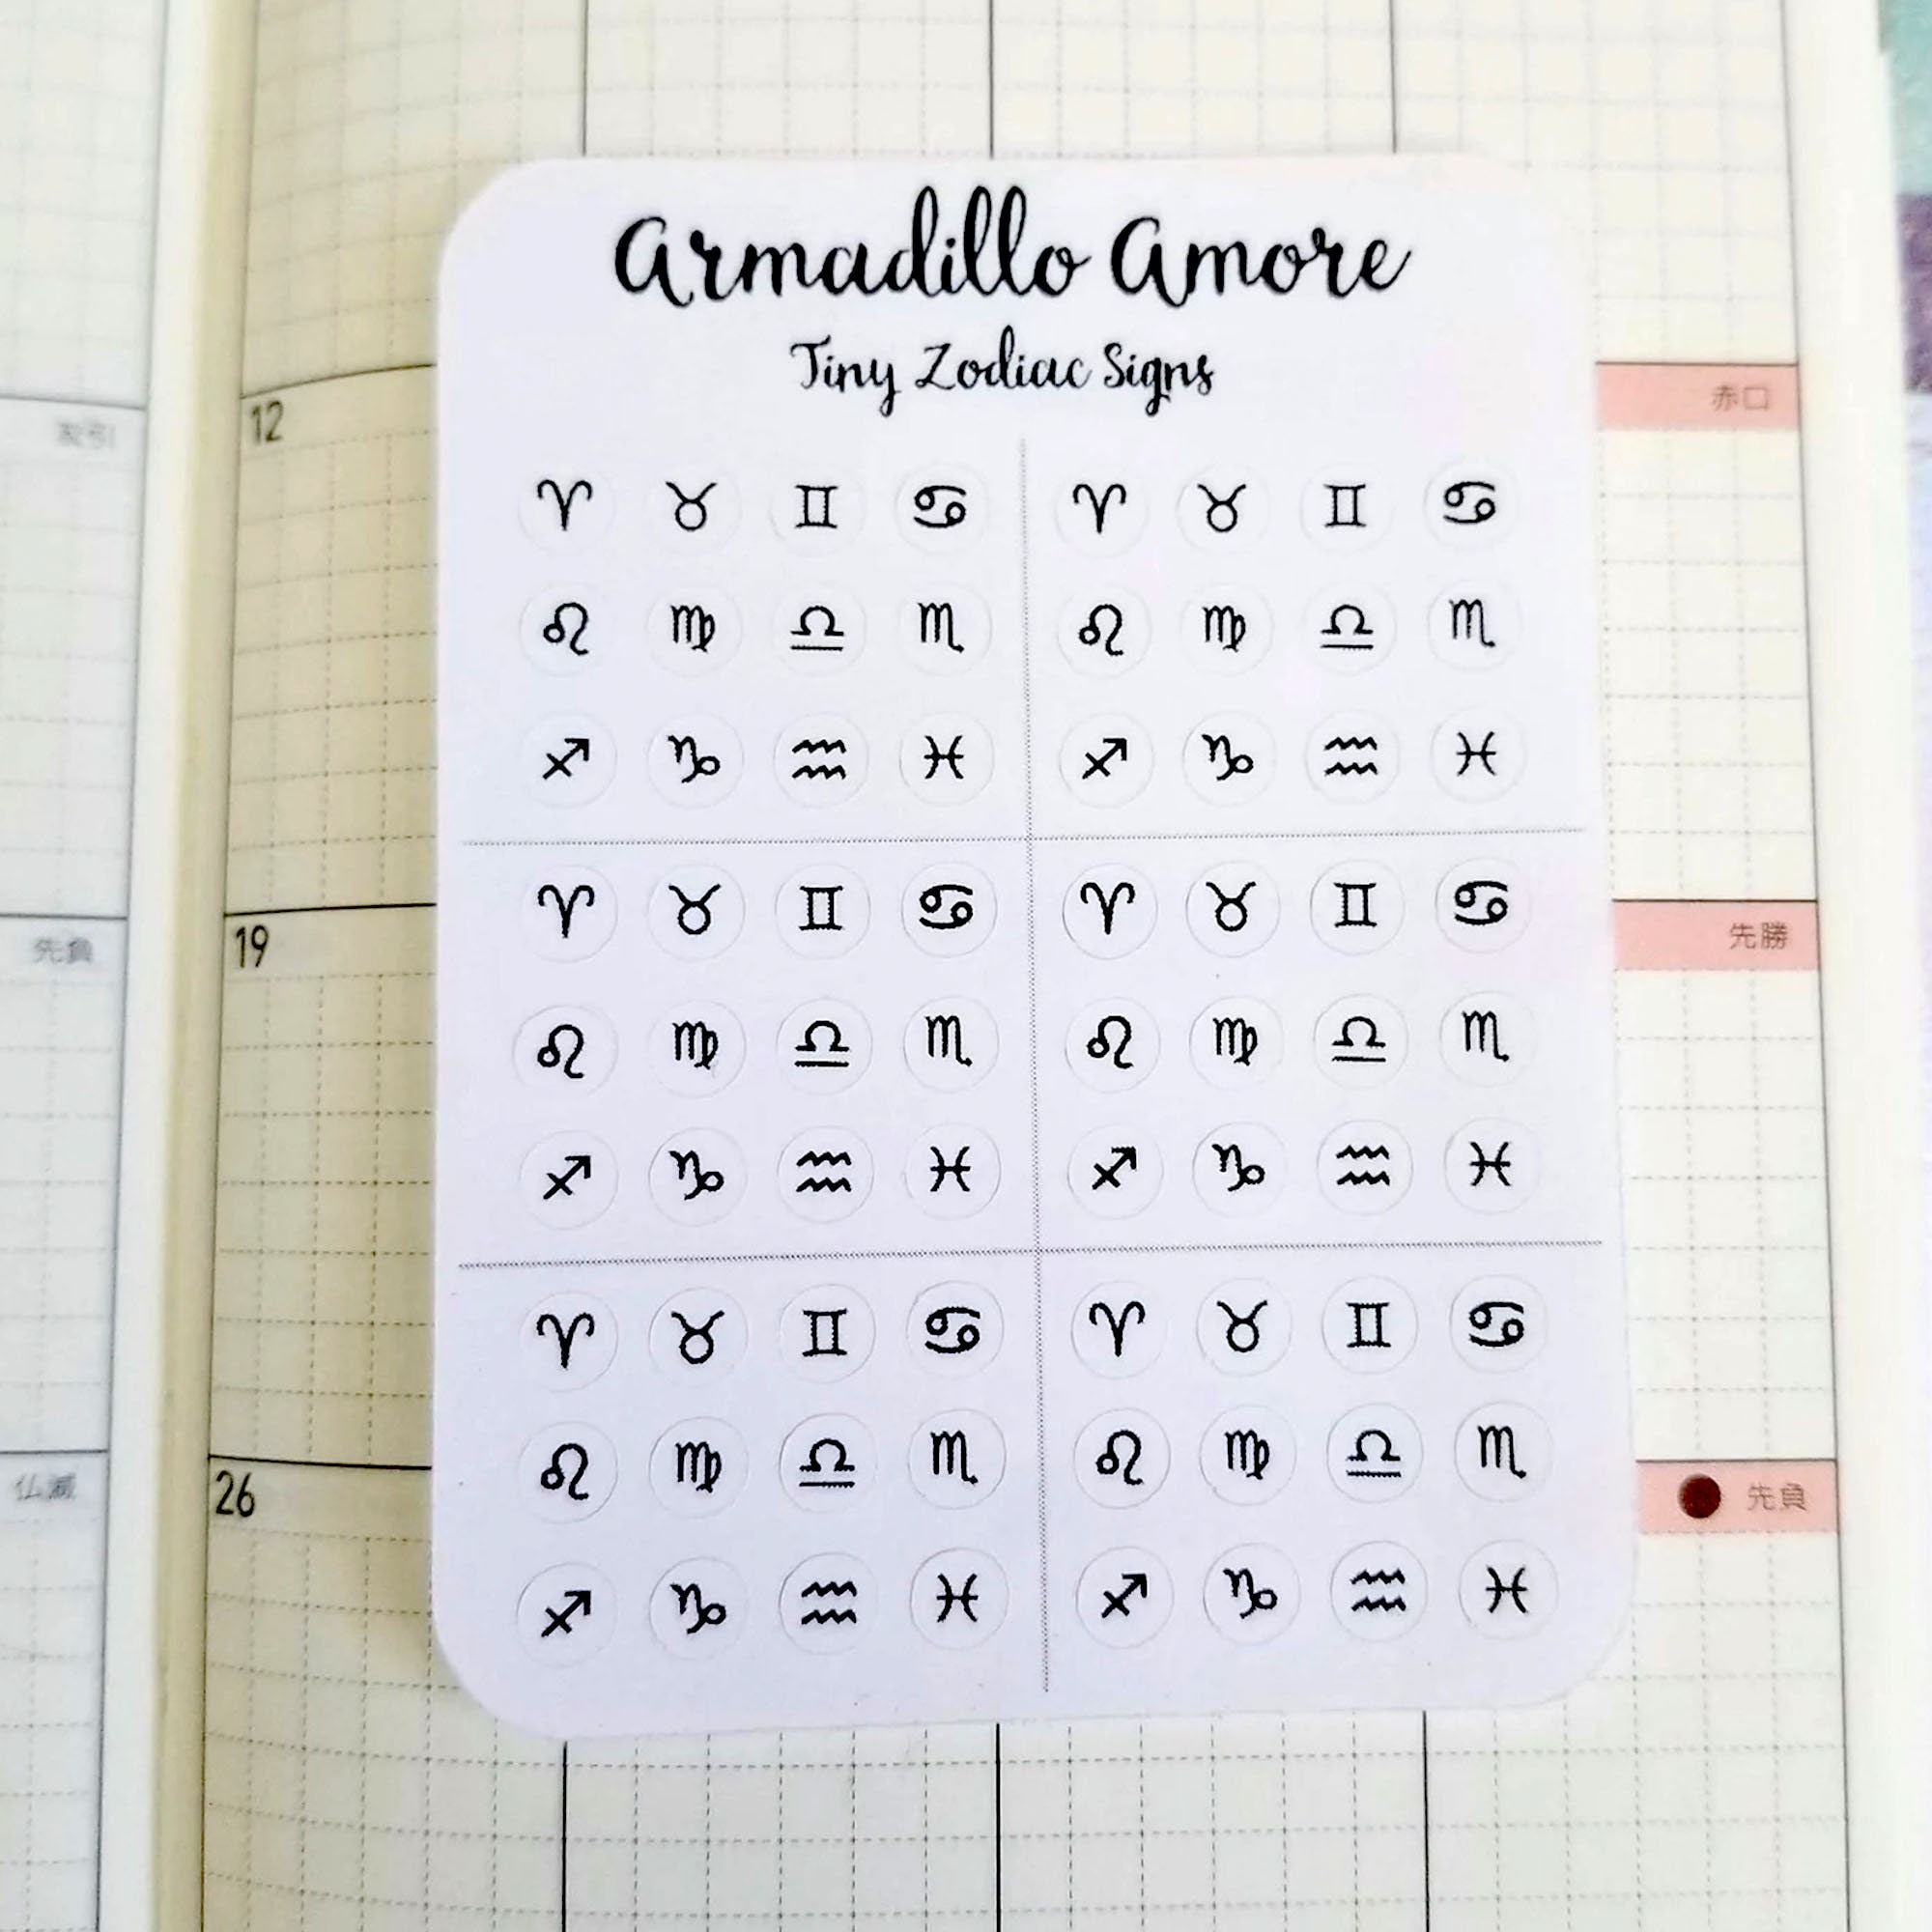 Armadillo Amore
Tiny Zodiac Signs
♈ ♉ ♊ ♋ ♈ ♉ ♊ ♋
♌ ♍ ♎ ♏ ♌ ♍ ♎ ♏
♐ ♑ ♒ ♓ ♐ ♑ ♒ ♓
♈ ♉ ♊ ♋ ♈ ♉ ♊ ♋
♌ ♍ ♎ ♏ ♌ ♍ ♎ ♏
♐ ♑ ♒ ♓ ♐ ♑ ♒ ♓
♈ ♉ ♊ ♋ ♈ ♉ ♊ ♋
♌ ♍ ♎ ♏ ♌ ♍ ♎ ♏
♐ ♑ ♒ ♓ ♐ ♑ ♒ ♓
友引
12
赤口
先負
19
先勝
仏滅
26
先負